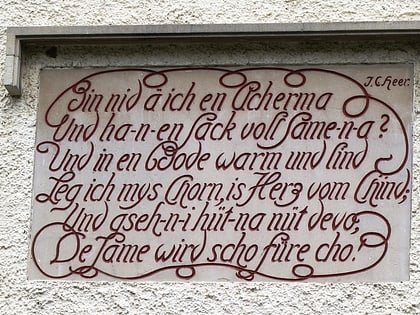 J.C. Heer.
Bin nid ä ich en Acherma
Und ha-n-en Sack voll Same-n-a?
Und in en Bode warm und lind
Leg ich mys Chorn, is Herz vom Chind;
Und gseh-n-i hüt-na nüt devo,
De Same wird scho füre cho!